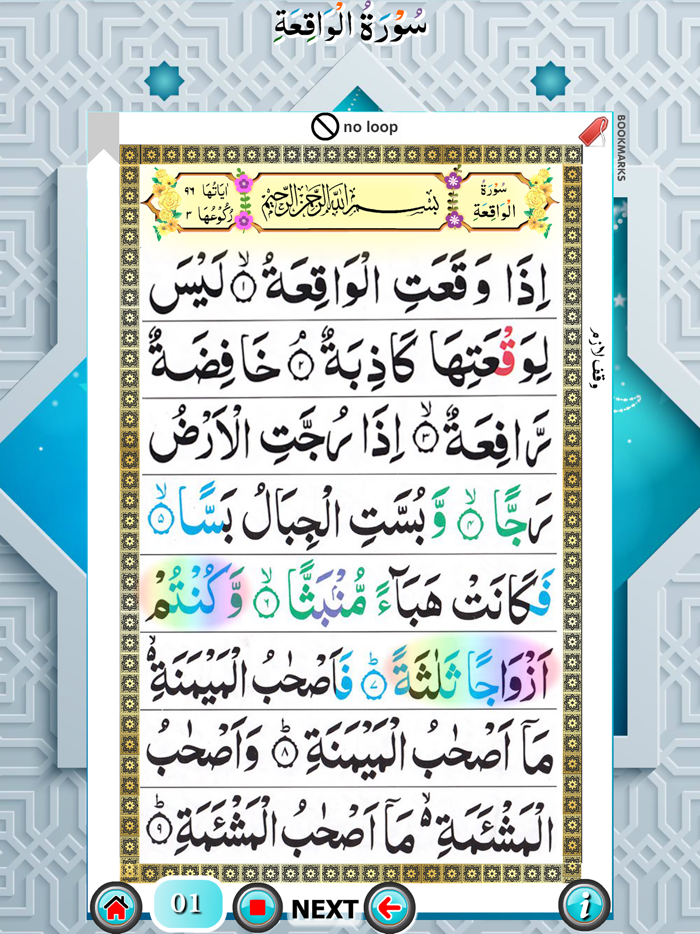 سُوْرَةُ الْوَاقِعَةِ
no loop
BOOKMARKS
سُوْرَةُ الْوَاقِعَةِ
بِسْمِ اللّٰهِ الرَّحْمٰنِ الرَّحِيْمِ
اٰيَاتُهَا ٩٦
رُكُوْعُهَا ٣
اِذَا وَقَعَتِ الْوَاقِعَةُ ۙ‏﴿۱﴾ لَيْسَ
لِوَقْعَتِهَا كَاذِبَةٌ ۘ‏﴿۲﴾ خَافِضَةٌ
وقف لازم
رَّافِعَةٌ ۙ‏﴿۳﴾ اِذَا رُجَّتِ الْاَرْضُ
رَجًّا ۙ‏﴿۴﴾ وَّبُسَّتِ الْجِبَالُ بَسًّا ۙ‏﴿۵﴾
فَكَانَتْ هَبَآءً مُّنْۢبَثًّا ۙ‏﴿۶﴾ وَّكُنْتُمْ
اَزْوَاجًا ثَلٰثَةً ؕ‏﴿۷﴾ فَاَصْحٰبُ الْمَيْمَنَةِ ۙ۬
مَاۤ اَصْحٰبُ الْمَيْمَنَةِ ؕ‏﴿۸﴾ وَاَصْحٰبُ
الْمَشْئَمَةِ ۙ۬ مَاۤ اَصْحٰبُ الْمَشْئَمَةِ ؕ‏﴿۹﴾
01
NEXT
i